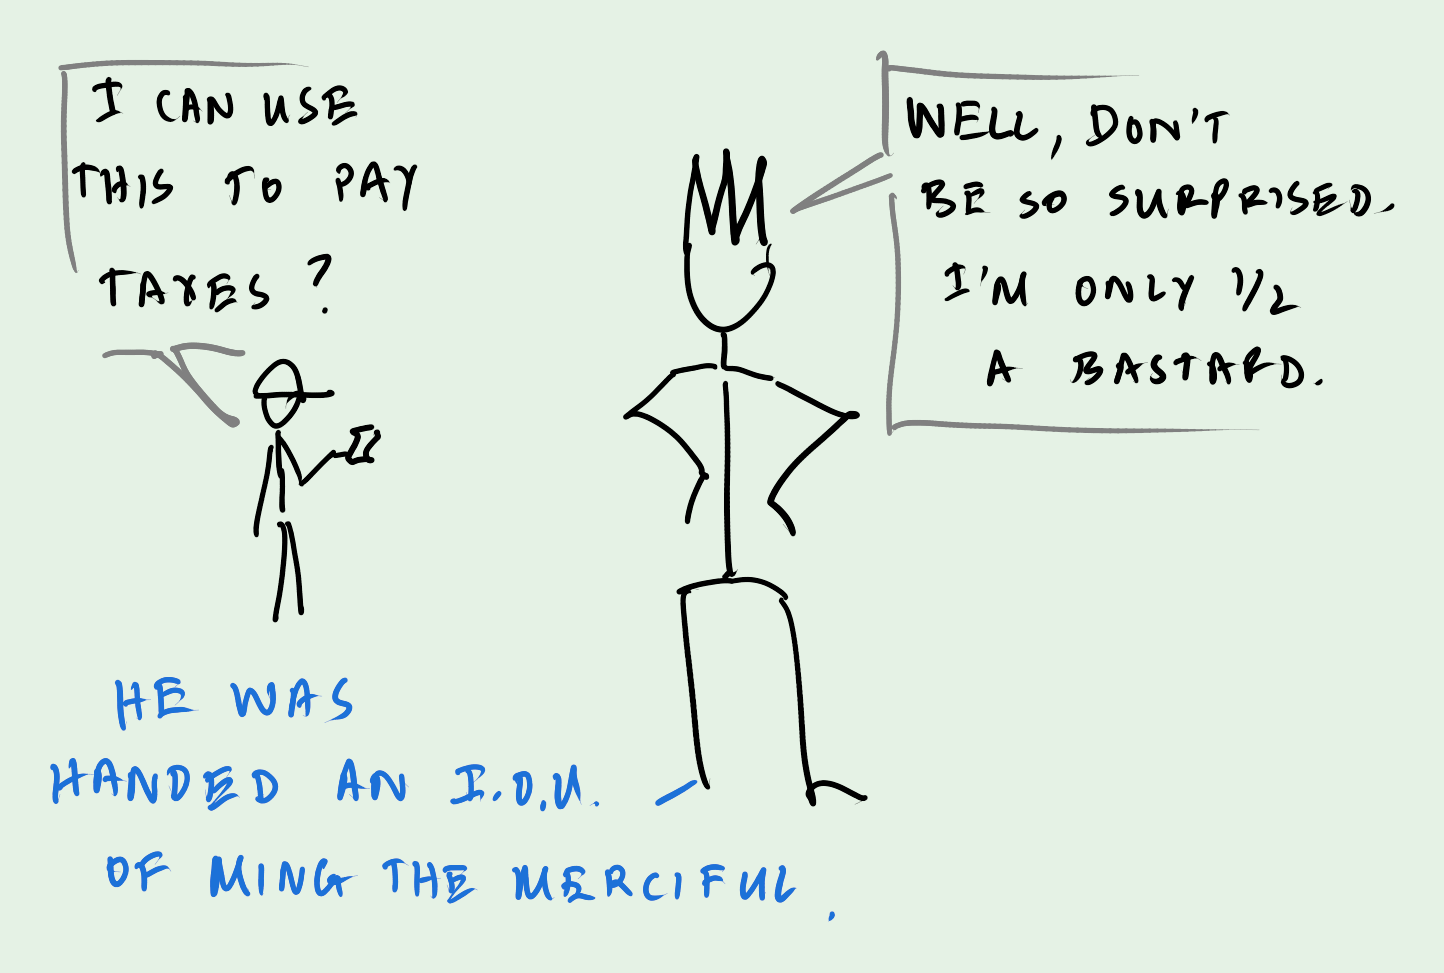 I CAN USE
THIS TO PAY
TAXES?
WELL, DON'T
BE SO SURPRISED.
I'M ONLY 1/2
A BASTARD.
HE WAS
HANDED AN I.O.U.
OF MING THE MERCIFUL.